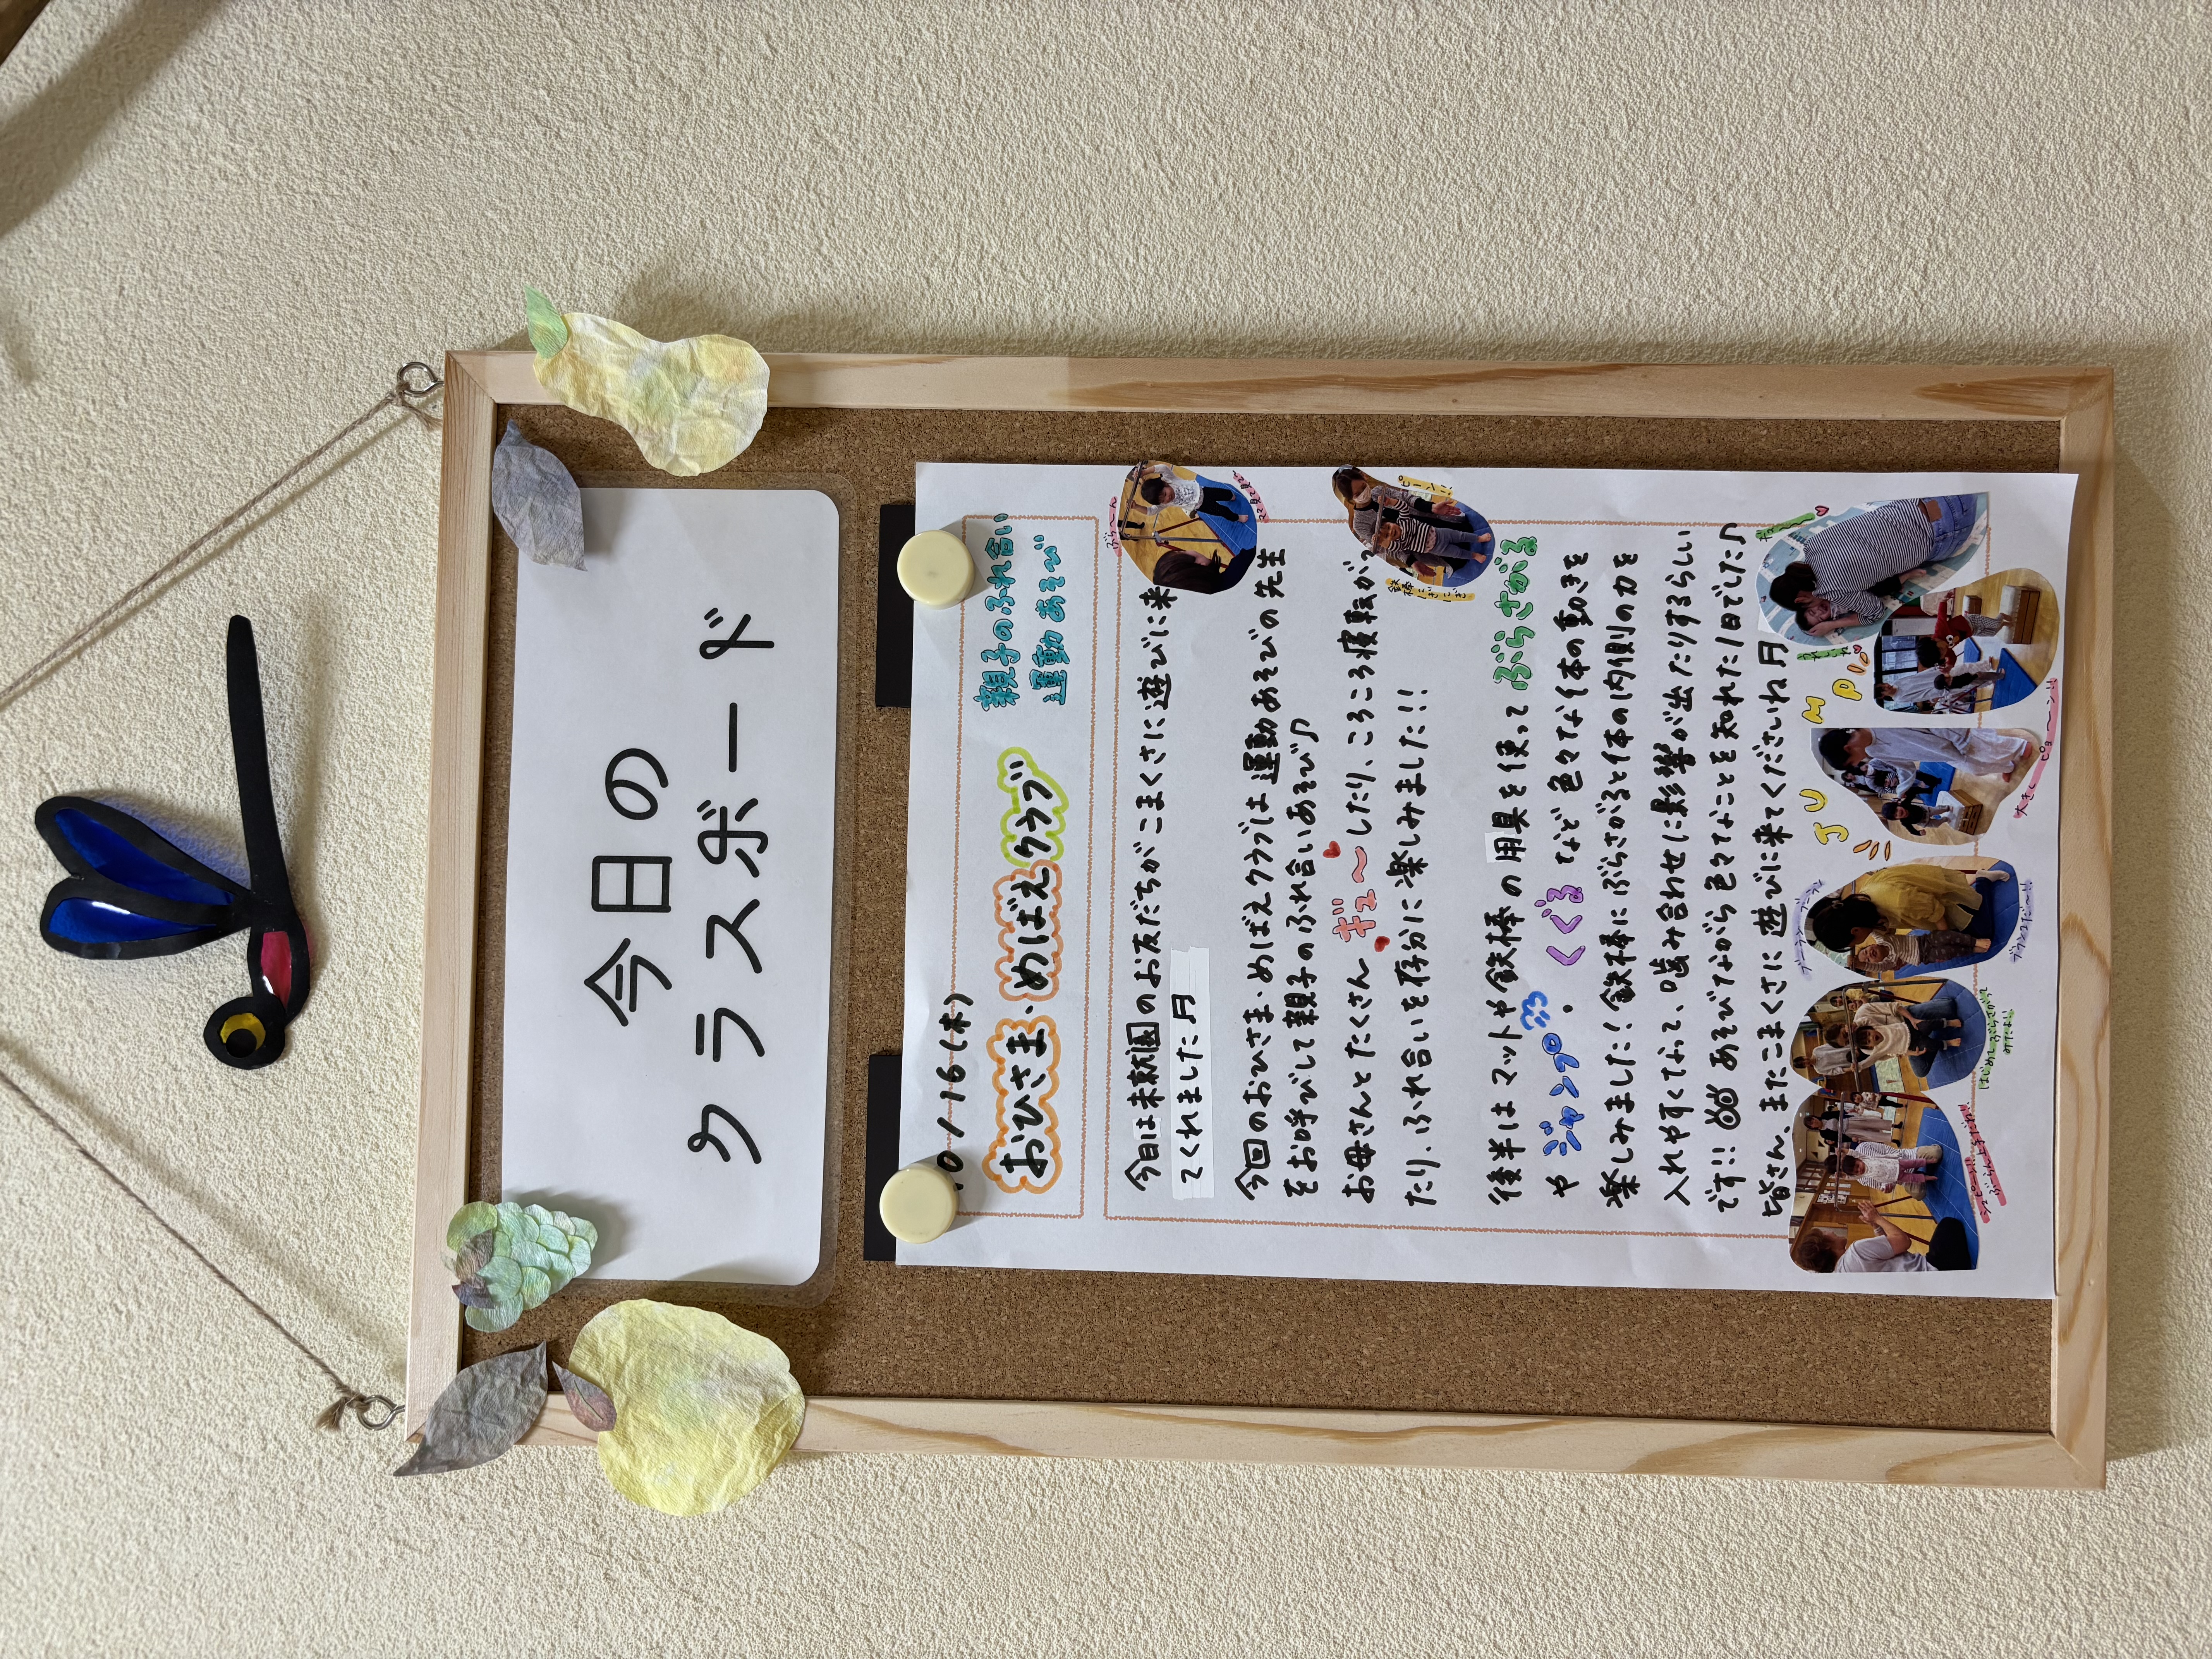 今日の
クラスボード
10/16(木)
おひさま・めばえクラブ
親子のふれ合い
運動あそび
今日は未就園のお友だちがこまくさに遊びに来
てくれました
今回のおひさま・めばえクラブは運動あそびの先生
をお呼びして親子のふれ合いあそび♪
お母さんとたくさん ギュ〜 したり、ころころ寝転が
たり、ふれ合いを存分に楽しみました!!
後半はマットや鉄棒の用具を使って ぶらさがる
や ジャンプ・くぐる など色々な体の動きを
楽しみました!鉄棒にぶらさがると体の内側の力を
入れやすくなって、噛み合わせに影響が出たりするらしい
です!! あそびながら色々なことを知れた1日でした♪
皆さん、またこまくさに遊びに来てくださいね
ぶら〜ん
JUMP
ブーランブーラン
ブランコだ〜!!
はじめてぶらさがって
みたよ!